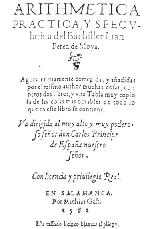 ARITHMETICA
PRACTICA, Y SPECV
latiua del Bachiller Iuan
Perez de Moya.
Agora nueuamente corregida, y añadidas
por el mismo author muchas cosas, con
otros dos libros, y vna Tabla muy copio
sa de las cosas mas notables de todo lo
que en este libro se contiene.
Va dirigida al muy alto y muy podero-
so señor don Carlos Principe
de España nuestro
señor.
Con licencia y priuilegio Real.
EN SALAMANCA.
Por Mathias Gast.
1562